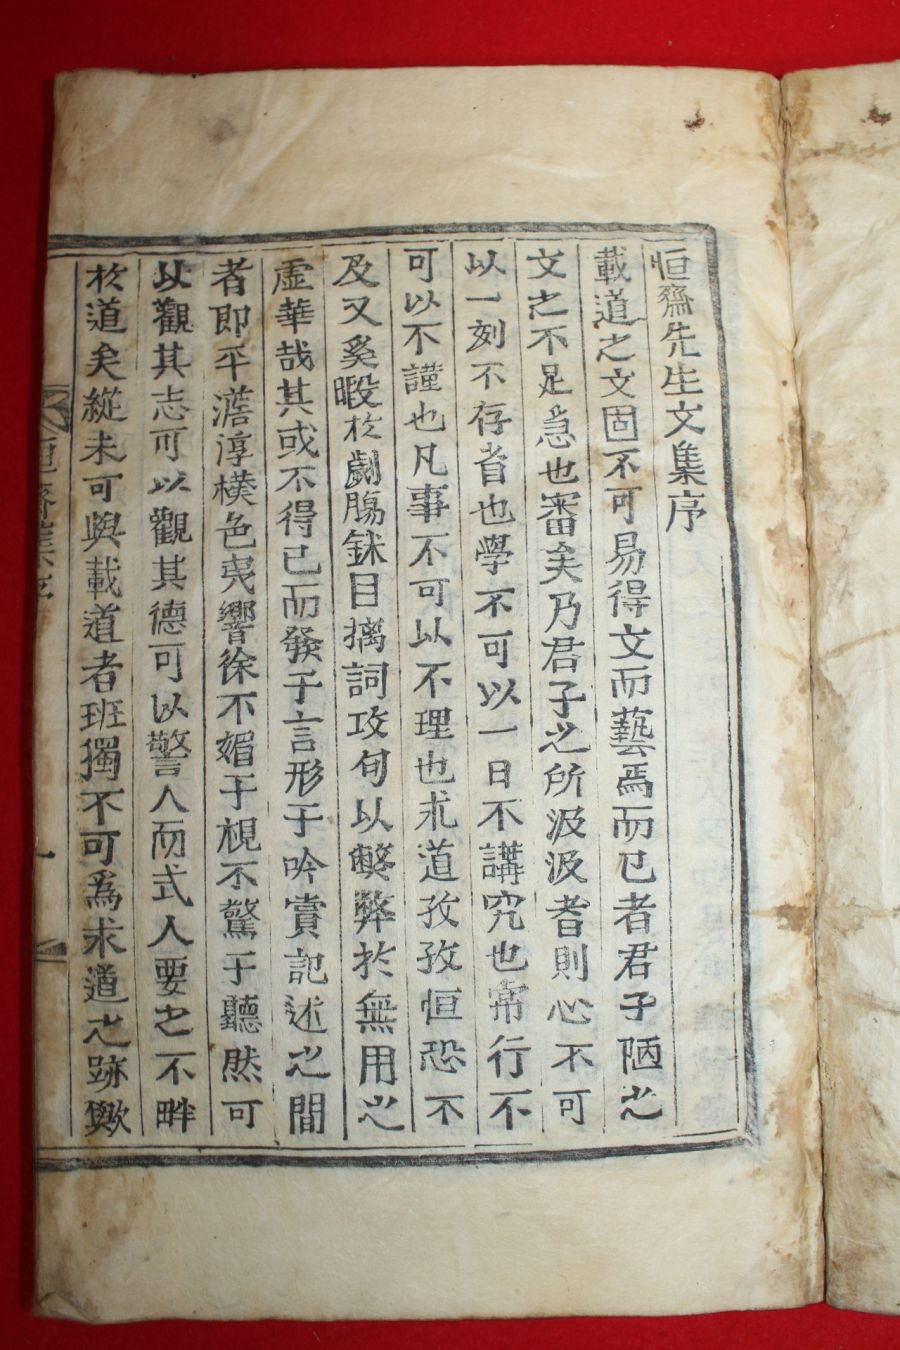 恒齋先生文集序
載道之文固不可易得文而藝焉而已者君子陋之
文之不足急也審矣乃君子之所汲汲者則心不可
以一刻不存省也學不可以一日不講究也常行不
可以不謹也凡事不可以不理也求道孜孜恒恐不
及又奚暇於劌膓鉥目摛詞攻句以斃弊於無用之
虛華哉其或不得已而發于言形于吟賞記述之間
者即平澹淳樸色夷響徐不媚于視不驚于聽然可
以觀其志可以觀其德可以警人而式人要之不畔
於道矣縱未可與載道者班獨不可爲求道之跡歟
恒齋集序
一